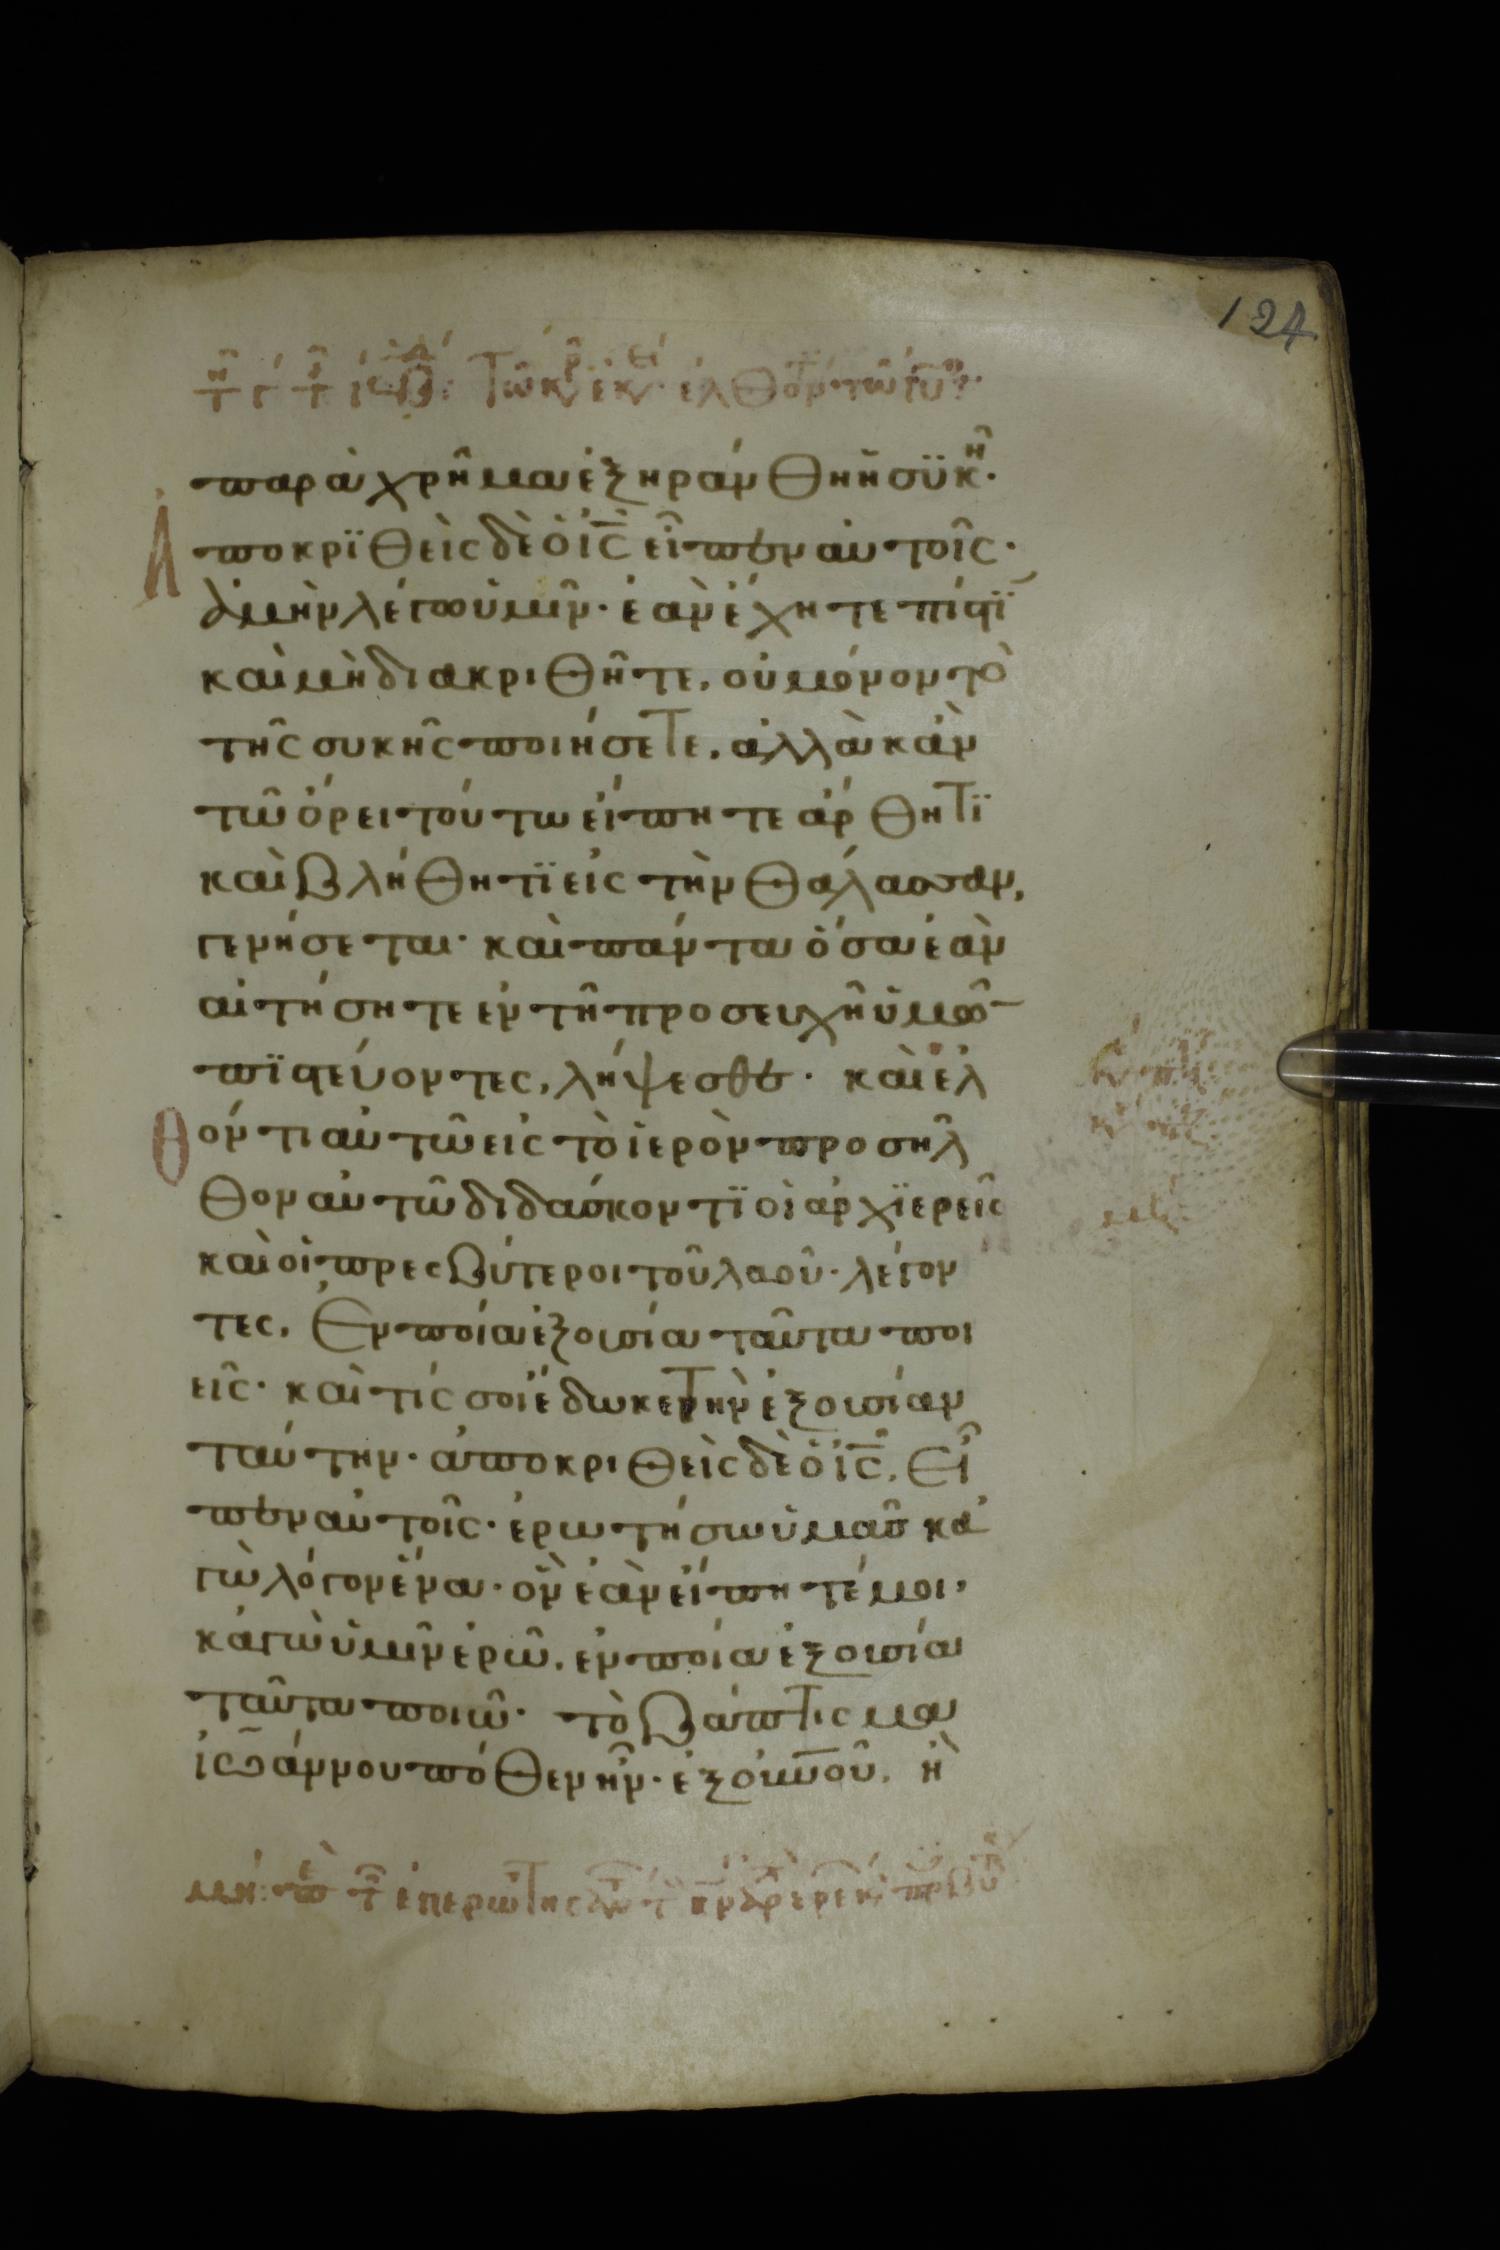 124
παραχρῆμα ἐξηράνθη ἡ συκῆ·
Ἀποκριθεὶς δὲ ὁ ἰς εἶπεν αὐτοῖς·
ἀμὴν λέγω ὑμῖν· ἐὰν ἔχητε πίστϊ
καὶ μὴ διακριθῆτε, οὐ μόνον τὸ
τῆς συκῆς ποιήσετε, ἀλλὰ κἂν
τῶ ὄρει τούτω εἴπητε ἄρθητϊ
καὶ βλήθητϊ εἰς τὴν θάλασσαν,
γενήσεται· καὶ πάντα ὅσα ἐὰν
αἰτήσητε ἐν τῆ προσευχῆ ὑμῶ
πϊστεύοντες, λήψεσθε· καὶ ἐλ
θόντι αὐτῶ εἰς τὸ ἱερὸν προσῆλ
θον αὐτῶ διδάσκοντϊ οἱ ἀρχϊερεῖς
καὶ οἱ πρεσβύτεροι τοῦ λαοῦ· λέγον
τες, Ἐν ποία ἐξουσία ταῦτα ποι
εῖς· καὶ τίς σοι ἔδωκε τὴν ἐξουσίαν
ταύτην· ἀποκριθεὶς δὲ ὁ ἰς, Εἶ
πεν αὐτοῖς· ἐρωτήσω ὑμᾶς κἀ
γὼ λόγον ἕνα· ὃν ἐὰν εἴπητέ μοι,
κἀγὼ ὑμῖν ἐρῶ, ἐν ποία ἐξουσία
ταῦτα ποιῶ· τὸ βάπτισμα
ἰωάννου πόθεν ἦν· ἐξ οὐνοῦ, ἢ